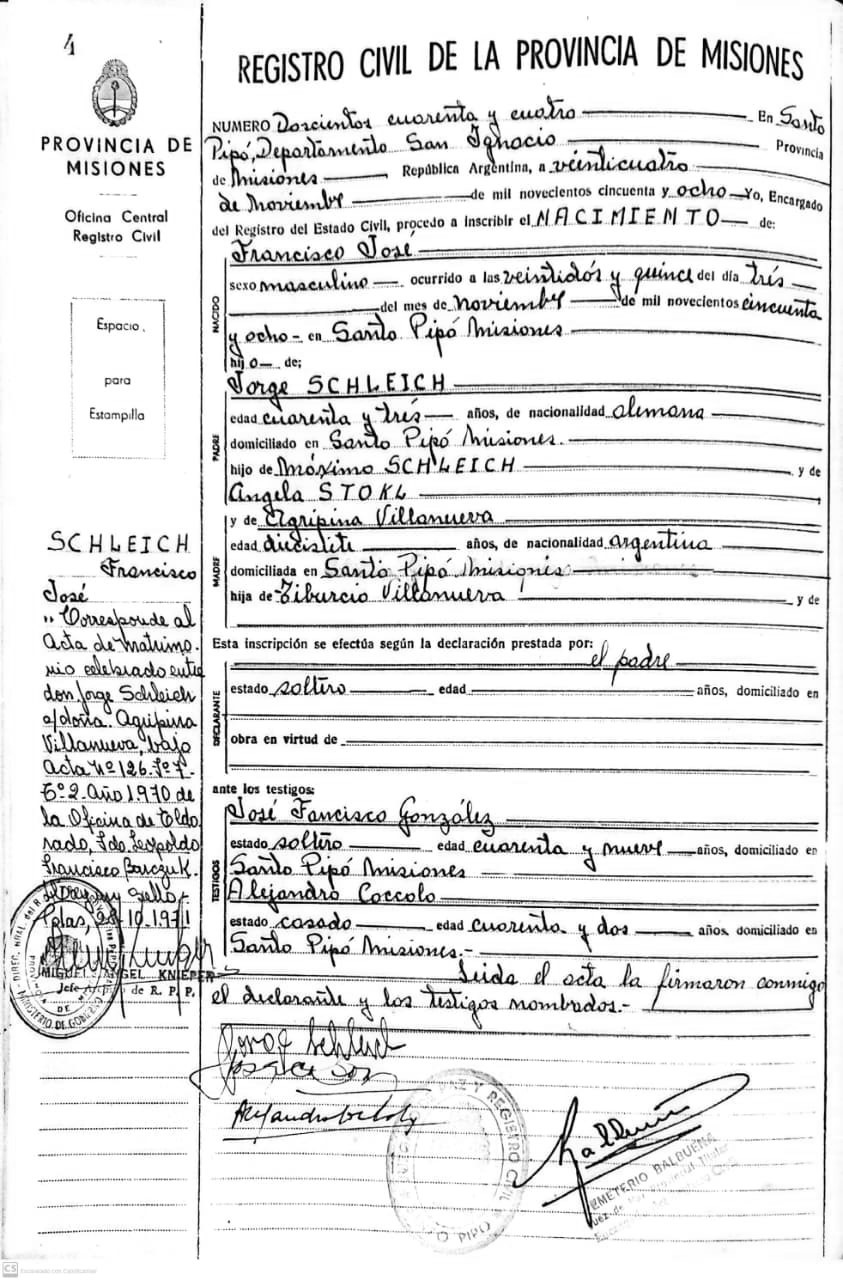 4
REGISTRO CIVIL DE LA PROVINCIA DE MISIONES
PROVINCIA DE
MISIONES
Oficina Central
Registro Civil
Espacio
para
Estampilla
NUMERO Doscientos cuarenta y cuatro En Santo
Pipó, Departamento San Ignacio Provincia
de Misiones República Argentina, a veinticuatro
de Noviembre de mil novecientos cincuenta y ocho Yo, Encargado
del Registro del Estado Civil, procedo a inscribir el NACIMIENTO de:
NACIDO
Francisco José
sexo masculino ocurrido a las veintidós y quince del día trés
del mes de noviembre de mil novecientos cincuenta
y ocho - en Santo Pipó Misiones
hijo de;
PADRE
Jorge SCHLEICH
edad cuarenta y trés años, de nacionalidad alemana
domiciliado en Santo Pipó Misiones.
hijo de Máximo SCHLEICH y de
Angela STOKL
MADRE
y de Agripina Villanueva
edad diecisiete años, de nacionalidad argentina
domiciliada en Santo Pipó Misiones
hija de Tiburcio Villanueva y de
Esta inscripción se efectúa según la declaración prestada por:
el padre
DECLARANTE
estado soltero edad años, domiciliado en
obra en virtud de
ante los testigos:
TESTIGOS
José Fancisco González
estado soltero edad cuarenta y nueve años, domiciliado en
Santo Pipó Misiones
Alejandro Coccolo
estado casado edad cuarenta y dos años, domiciliado en
Santo Pipó Misiones.-
Leida el acta la firmaron conmigo
el declarante y los testigos nombrados.-
SCHLEICH
Francisco
José
"Corresponde al
Acta de matrimo-
nio celebrado entre
don Jorge Schleich
c/doña. Agripina
Villanueva, bajo
Acta Nº 126. Fº 7.
Tº 2. Año 1970 de
la Oficina de Eldo
rado, Fdo. Leopoldo
Francisco Barczuk.
Hay un Sello.
Pdas, 28.10.1971
MIGUEL ANGEL KNIEPER
Jefe de R. P. P.
MINISTERIO DE GOBIERNO
Jorge Schleich
Y REGISTRO CIVIL
PIPO
DEMETERIO BALBUENA
CS Escaneado con CamScanner